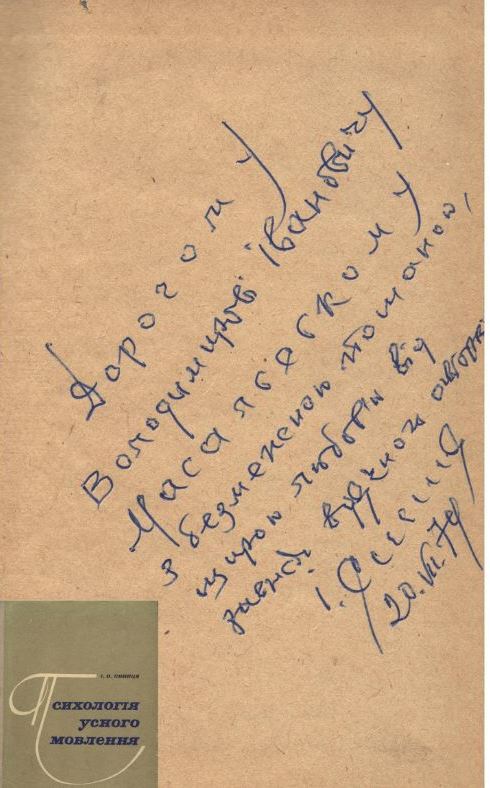 Дорогому
Володимирові Івановичу
Масальському
з безмежною пошаною,
щирою любов'ю від
завжди вдячного автора
І. Синиця
20.VII.74
І. О. СИНИЦЯ
Психологія
усного
мовлення